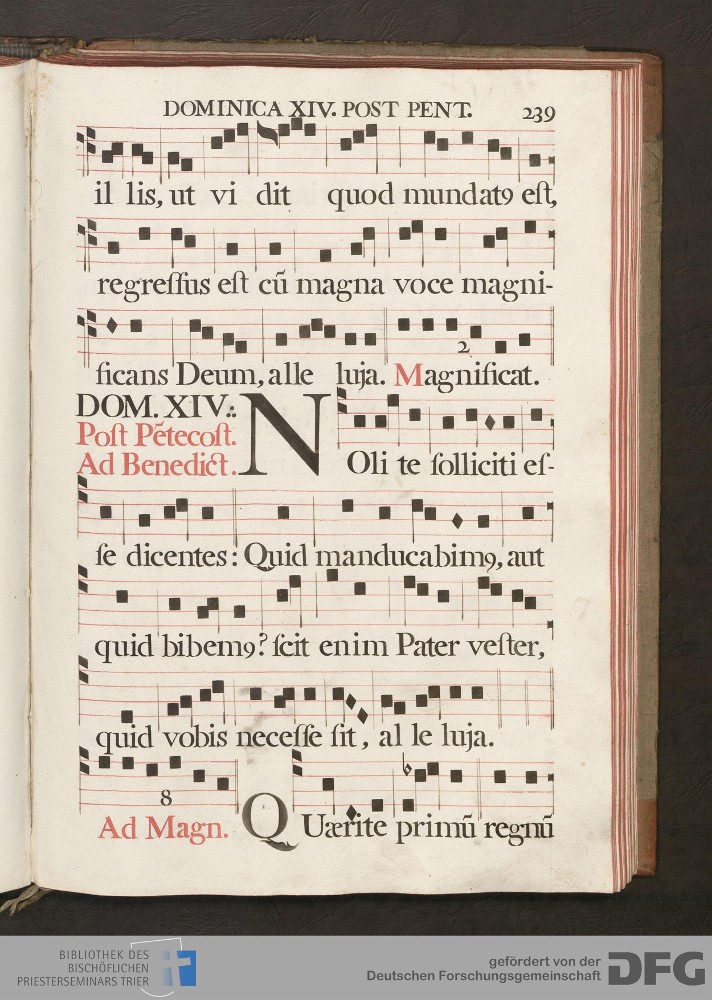 DOMINICA XIV. POST PENT. 239
il lis, ut vi dit quod mundatꝰ eſt,
regreſſus eſt cū magna voce magni-
2
ficans Deum, alle luja. Magnificat.
DOM. XIV.
Poſt Pētecoſt.
Ad Benedict.
NOli te ſolliciti eſ-
ſe dicentes: Quid manducabimꝰ, aut
quid bibemꝰ? ſcit enim Pater veſter,
quid vobis neceſſe ſit, al le luja.
8
Ad Magn. QUærite primū regnū
BIBLIOTHEK DES
BISCHÖFLICHEN
PRIESTERSEMINARS TRIER
gefördert von der
Deutschen Forschungsgemeinschaft
DFG